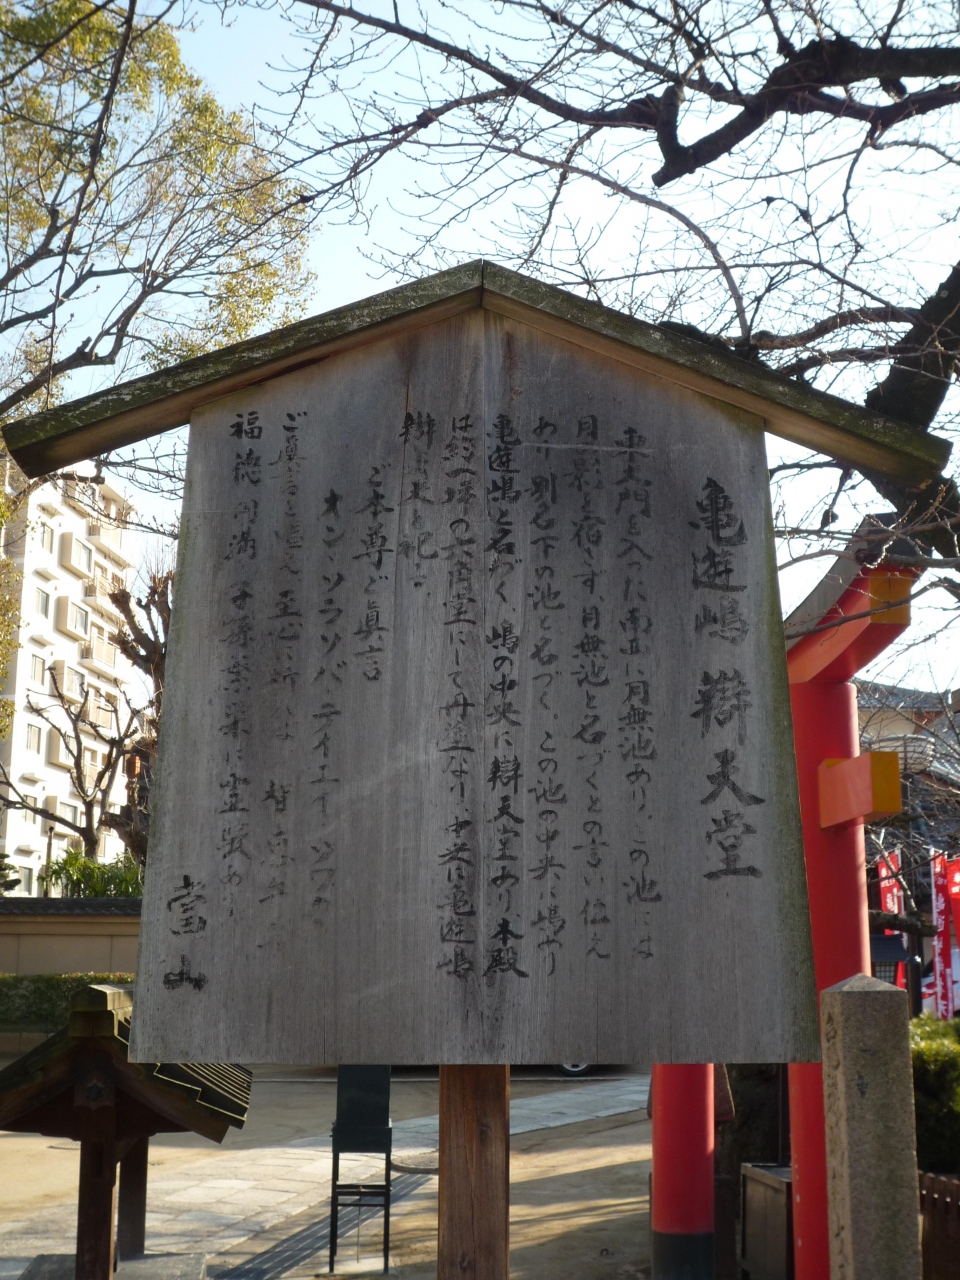 亀遊嶋辯天堂
東大門を入った南正に月無池あり、この池には
月影を宿さず、月無池と名づくとの言い伝え
あり別名下の池と名づく。この池の中央に嶋あり
亀遊嶋と名づく、嶋の中央に辯天堂あり、本殿
は総一坪の六角堂にして丹塗なり、中央に亀遊嶋
辯才天を祀る。
ご本尊ご真言
オン・ソラソバ・テイエイ ソワカ
ご真言を唱え至心に祈れば 智恵
福徳円満 子孫繁栄に霊験あり
當山